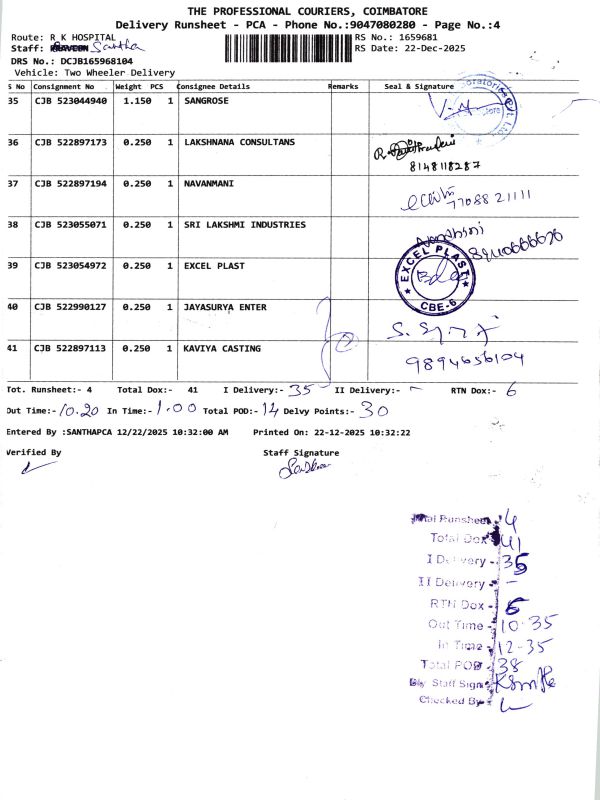 THE PROFESSIONAL COURIERS, COIMBATORE
Delivery Runsheet - PCA - Phone No.:9047080280 - Page No.:4
Route: R K HOSPITAL
RS No.: 1659681
Staff: Santha
RS Date: 22-Dec-2025
DRS No.: DCJB165968104
Vehicle: Two Wheeler Delivery
S No Consignment No Weight PCS Consignee Details Remarks Seal & Signature
35 CJB 523044940 1.150 1 SANGROSE
36 CJB 522897173 0.250 1 LAKSHNANA CONSULTANS
8148118287
37 CJB 522897194 0.250 1 NAVANMANI
7708821111
38 CJB 523055071 0.250 1 SRI LAKSHMI INDUSTRIES
39 CJB 523054972 0.250 1 EXCEL PLAST
EXCEL PLAST
CBE-6
40 CJB 522990127 0.250 1 JAYASURYA ENTER
41 CJB 522897113 0.250 1 KAVIYA CASTING
9894656104
Tot. Runsheet:- 4 Total Dox:- 41 I Delivery:- 35 II Delivery:- - RTN Dox:- 6
Out Time:- 10.20 In Time:- 1.00 Total POD:- 14 Delvy Points:- 30
Entered By :SANTHAPCA 12/22/2025 10:32:00 AM Printed On: 22-12-2025 10:32:22
Verified By Staff Signature
Total Runsheet - 4
Total Dox - 41
I Delivery - 35
II Delivery - -
RTN Dox - 6
Out Time - 10.35
In Time - 12-35
Total POD - 38
Dly Staff Sign
Checked By